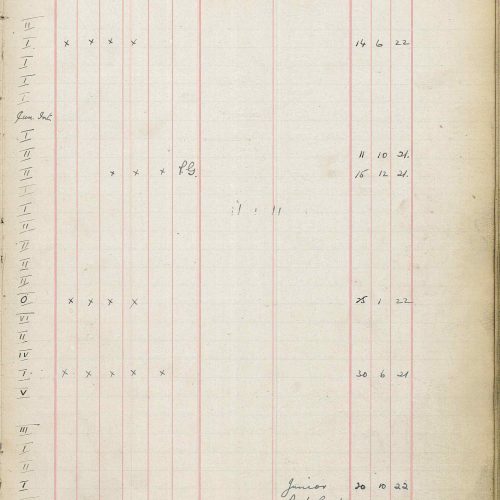 II
I × × × × 14 6 22
I
I
I
Jun. Int.
I
II 11 10 21.
II × × × P.G. 15 12 21.
I
I
II
II
II
II
O × × × × 25 1 22
VI
II
IV
I × × × × × 30 6 21
V
III
I
II
I Junior 20 10 22